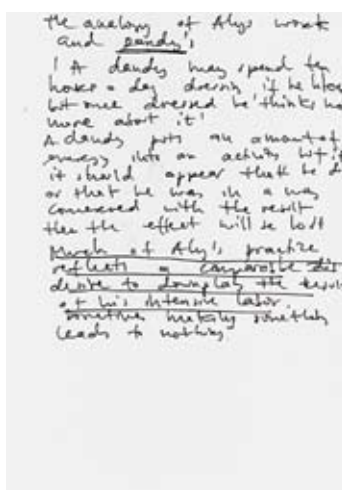 the analogy of Alys work
and dandy's
' A dandy may spend ten
hours a day dressing, if he likes
but once dressed he thinks no
more about it'
A dandy puts an amount of
energy into an activity but if
it should appear that he d
or that he was in a way
concerned with the result
then the effect will be lost
Much of Aly's practize
reflects a comparable dis
desire to downplay the result
of his intensive labor.
sometimes making something
leads to nothing